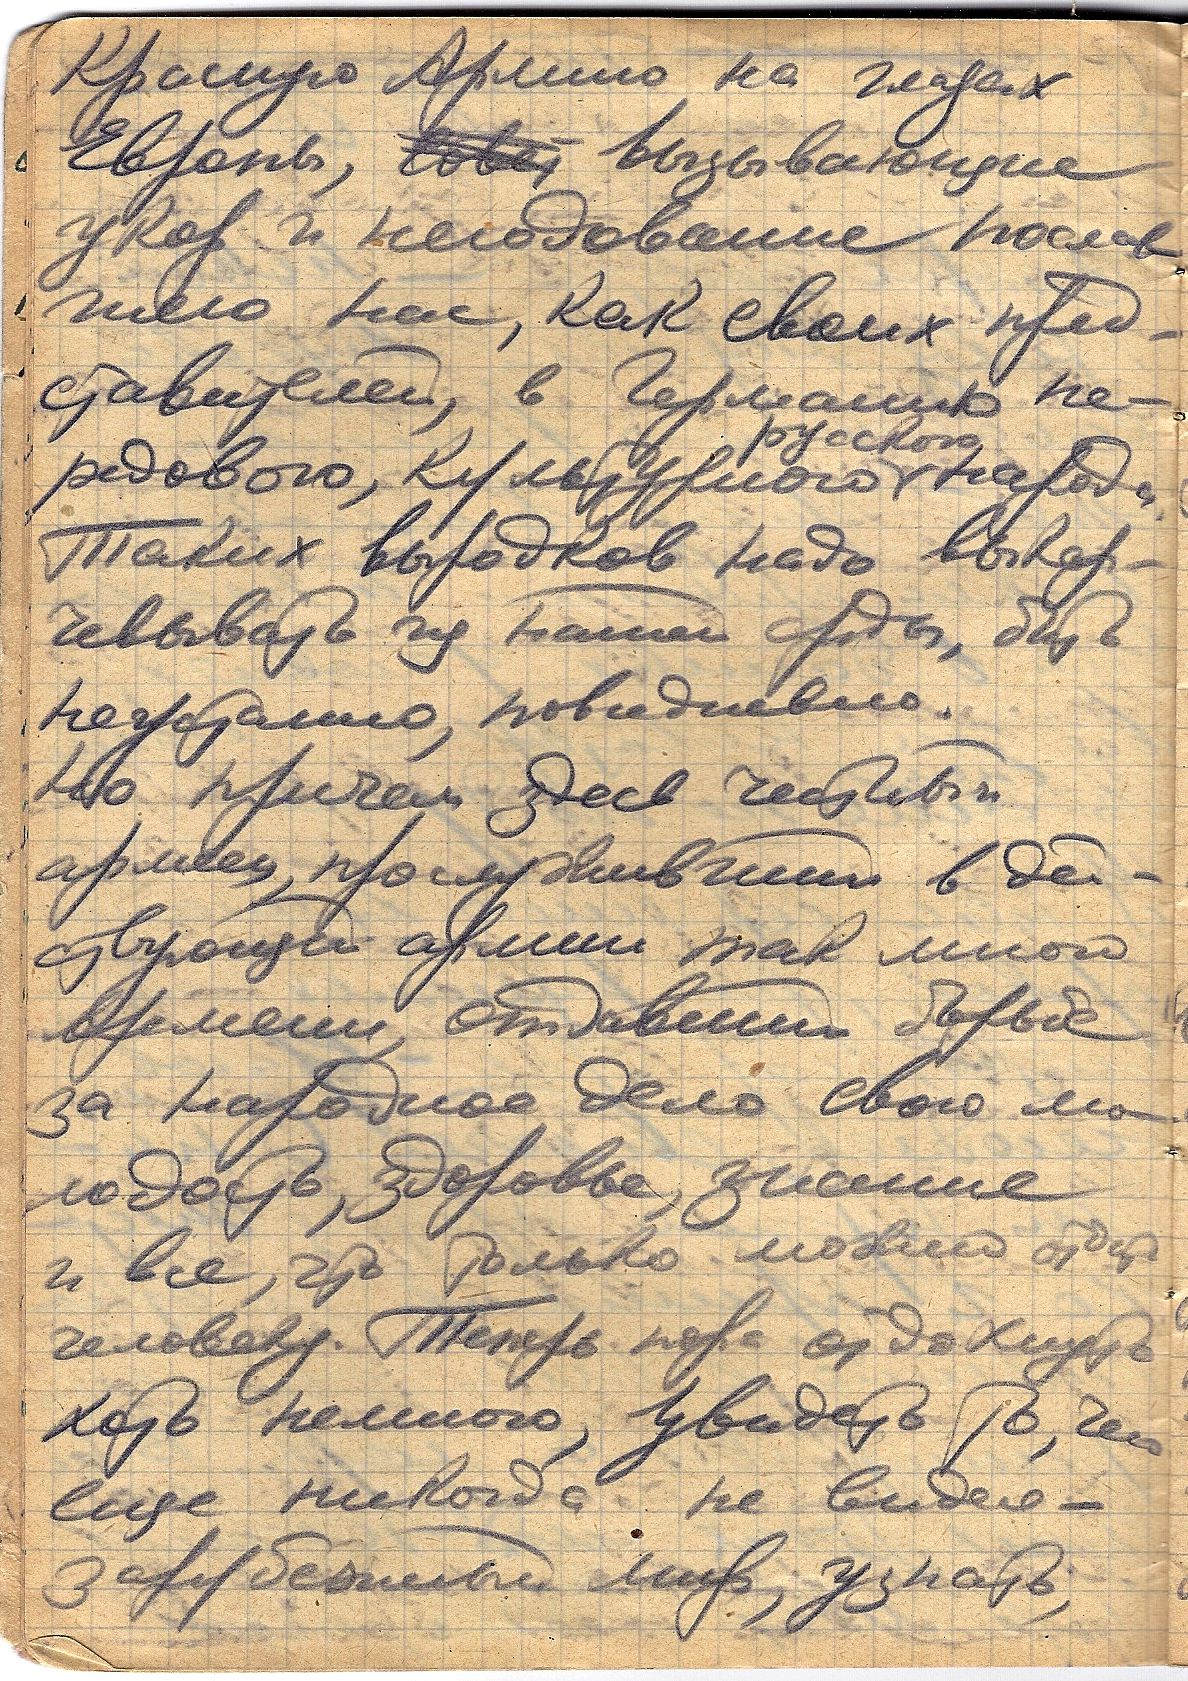 Красную Армию на глазах
Европы, вызывающие
укор и негодование послав
шего нас, как своих пред-
ставителей, в Германию пе-
редового, культурного русского народа.
Таких выродков надо выкор-
чевывать из нашей среды, бить
неустанно, повидневно.
Но причем здесь честный
армеец, прослуживший в дей-
ствующей армии так много
времени, отдавший борьбе
за народное дело свою мо-
лодость, здоровье, знание
и все, что только можно отдать
человеку. Теперь пора отдохнуть
хоть немного, увидеть то, чего
еще никогда не видел -
зарубежный мир, узнать,